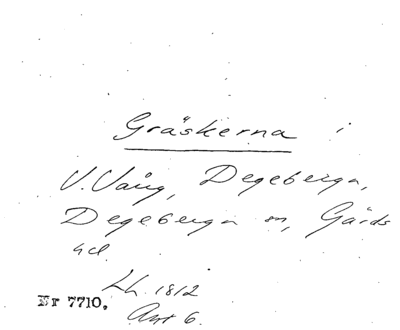 Gräskerna i
V. Vång, Degeberga,
Degeberga sn, Gärds
hd
Lh. 1812
Akt 6.
Nr 7710.